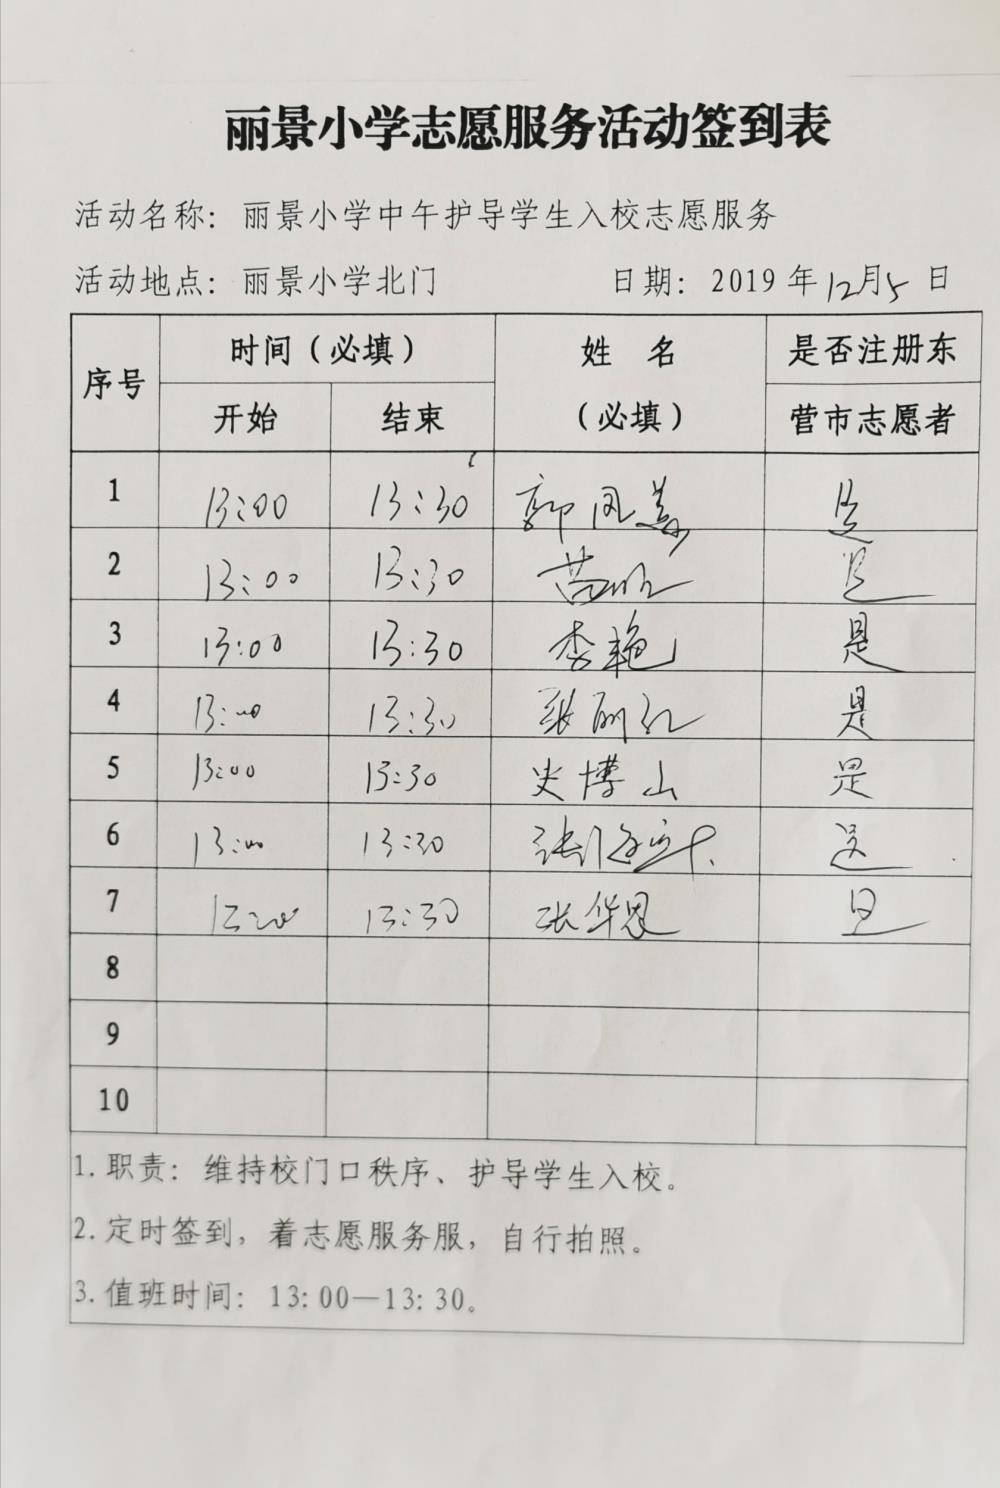 丽景小学志愿服务活动签到表
活动名称：丽景小学中午护导学生入校志愿服务
活动地点：丽景小学北门 日期：2019年12月5日
序号 时间（必填） 姓 名 是否注册东
开始 结束 （必填） 营市志愿者
1 13:00 13:30 郭凤美 是
2 13:00 13:30 苗 是
3 13:00 13:30 李艳 是
4 13:00 13:30 张丽红 是
5 13:00 13:30 史博山 是
6 13:00 13:30 张 是
7 13:30 张华恩 是
8
9
10
1.职责：维持校门口秩序、护导学生入校。
2.定时签到，着志愿服务服，自行拍照。
3.值班时间：13:00—13:30。